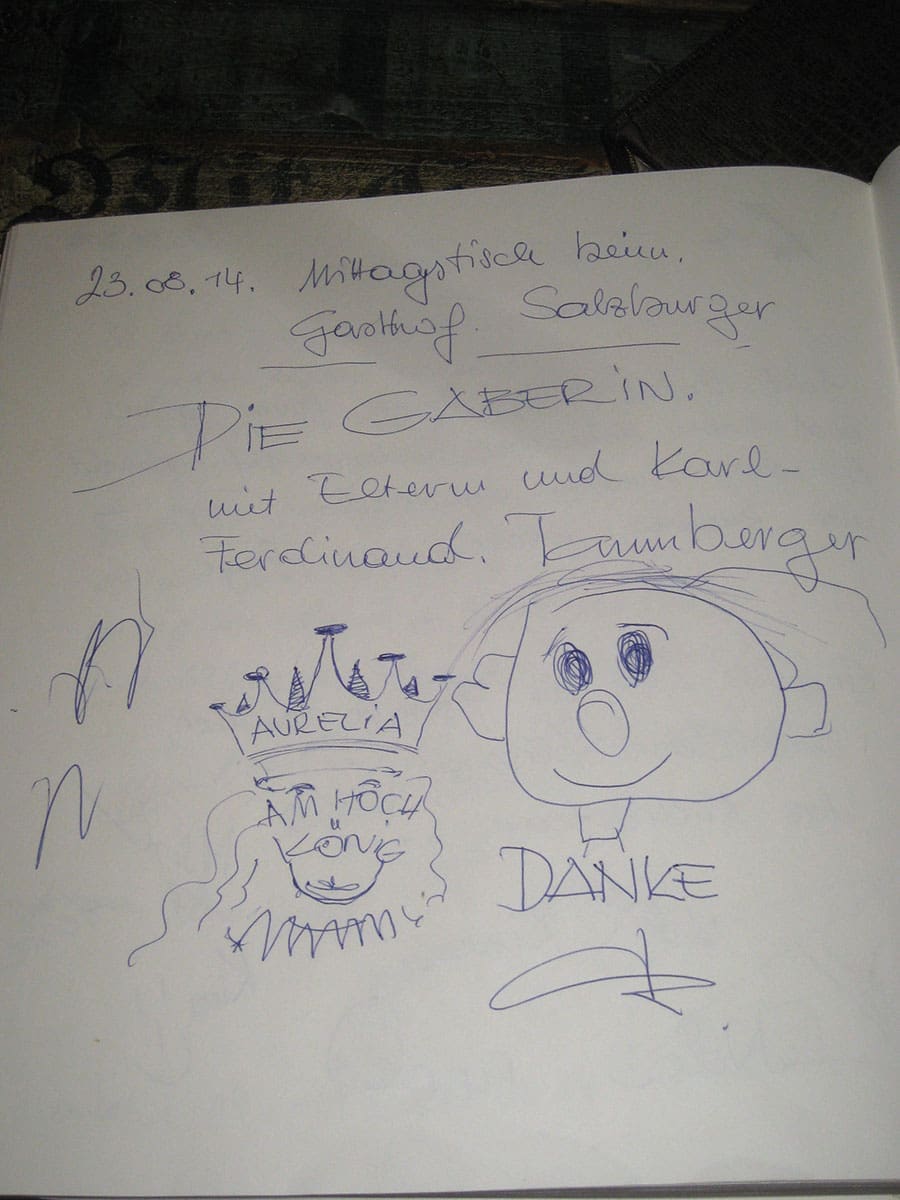 23.08.14. Mittagstisch beim.
Gasthof. Salzburger
DIE GABERIN.
mit Eltern und Karl-
Ferdinand.
AURELIA
AM HOCH
KÖNIG
DANKE